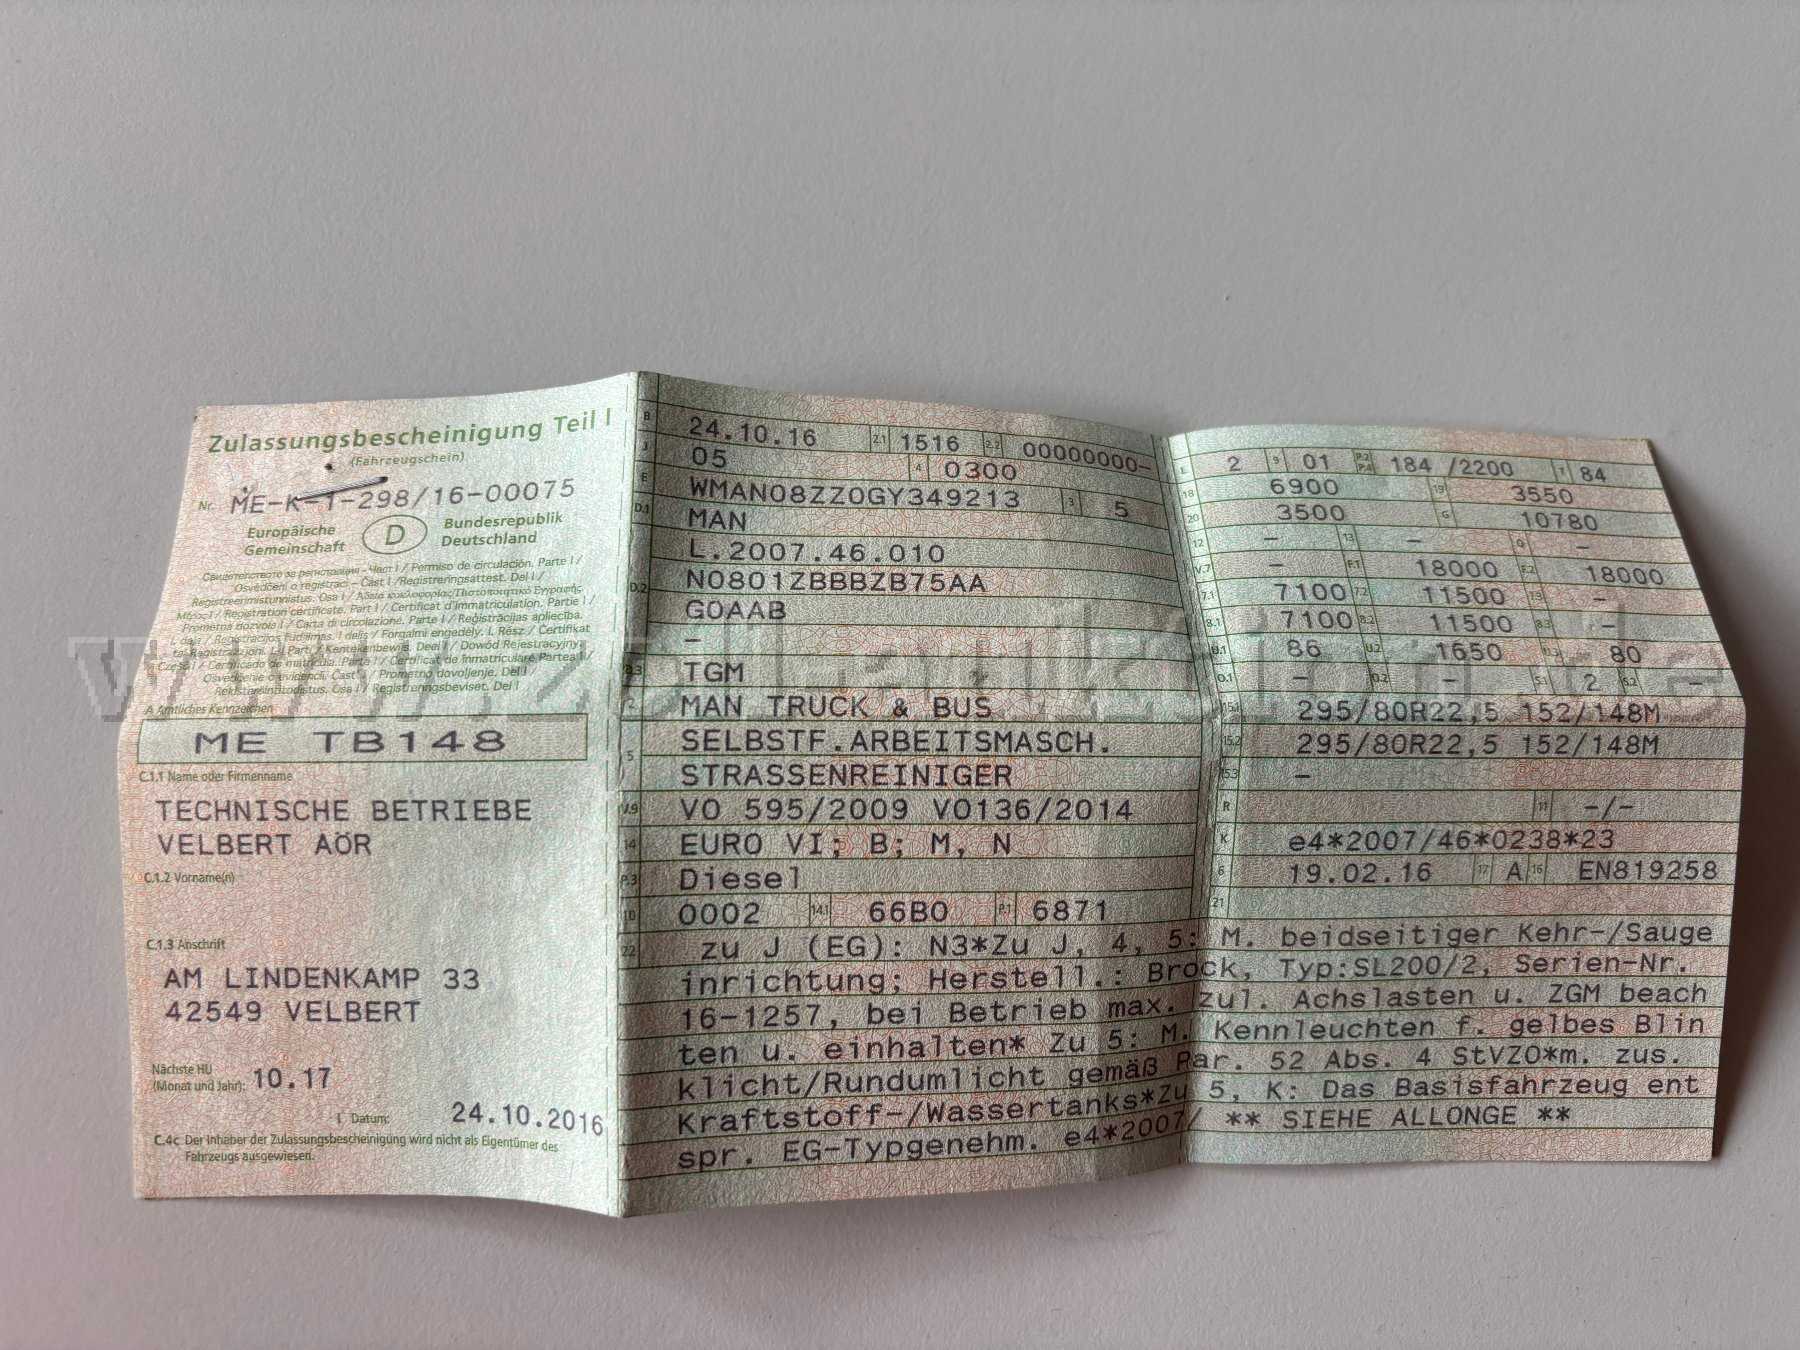 Zulassungsbescheinigung Teil I
(Fahrzeugschein)
Nr. ME-K-1-298/16-00075
Europäische Gemeinschaft
D
Bundesrepublik Deutschland
Свидетелство за регистрация – Част I / Permiso de circulación. Parte I /
Osvědčení o registraci – Část I / Registreringsattest. Del I /
Registreerimistunnistus. Osa I / Άδεια κυκλοφορίας/Πιστοποιητικό Εγγραφής
Μέρος I / Registration certificate. Part I / Certificat d'immatriculation. Partie I /
Prometna dozvola I / Carta di circolazione. Parte I / Reģistrācijas apliecība.
I. daļa / Registracijos liudijimas. I dalis / Forgalmi engedély. I. Rész / Ċertifikat
ta' Reġistrazzjoni. L-I Parti / Kentekenbewijs. Deel I / Dowód Rejestracyjny.
Część I / Certificado de matrícula. Parte I / Certificat de înmatriculare Partea I /
Osvedčenie o evidencii. Časť I / Prometno dovoljenje. Del I /
Rekisteröintitodistus. Osa I / Registreringsbeviset. Del I
A Amtliches Kennzeichen
ME TB148
C.1.1 Name oder Firmenname
TECHNISCHE BETRIEBE
VELBERT AÖR
C.1.2 Vorname(n)
C.1.3 Anschrift
AM LINDENKAMP 33
42549 VELBERT
Nächste HU
(Monat und Jahr): 10.17
I Datum: 24.10.2016
C.4c Der Inhaber der Zulassungsbescheinigung wird nicht als Eigentümer des
Fahrzeugs ausgewiesen.
B 24.10.16 2.1 1516 2.2 00000000-
J 05 4 0300
E WMAN08ZZ0GY349213 3 5
D.1 MAN
L.2007.46.010
D.2 N0801ZBBBZB75AA
G0AAB
–
D.3 TGM
2 MAN TRUCK & BUS
5 SELBSTF.ARBEITSMASCH.
STRASSENREINIGER
V.9 VO 595/2009 VO136/2014
14 EURO VI; B; M, N
P.3 Diesel
10 0002 14.1 66B0 P.1 6871
L 2 9 01 P.2 P.4 184 /2200 T 84
18 6900 19 3550
20 3500 G 10780
12 – 13 – Q –
V.7 – F.1 18000 F.2 18000
7.1 7100 7.2 11500 7.3 –
8.1 7100 8.2 11500 8.3 –
U.1 86 U.2 1650 U.3 80
O.1 – O.2 – S.1 2 S.2 –
15.1 295/80R22,5 152/148M
15.2 295/80R22,5 152/148M
15.3 –
R 11 –/–
K e4*2007/46*0238*23
6 19.02.16 17 A 16 EN819258
21
22 zu J (EG): N3*Zu J, 4, 5: M. beidseitiger Kehr-/Sauge
inrichtung; Herstell.: Brock, Typ:SL200/2, Serien-Nr.
16-1257, bei Betrieb max. zul. Achslasten u. ZGM beach
ten u. einhalten* Zu 5: M. Kennleuchten f. gelbes Blin
klicht/Rundumlicht gemäß Par. 52 Abs. 4 StVZO*m. zus.
Kraftstoff-/Wassertanks*Zu 5, K: Das Basisfahrzeug ent
spr. EG-Typgenehm. e4*2007/ ** SIEHE ALLONGE **